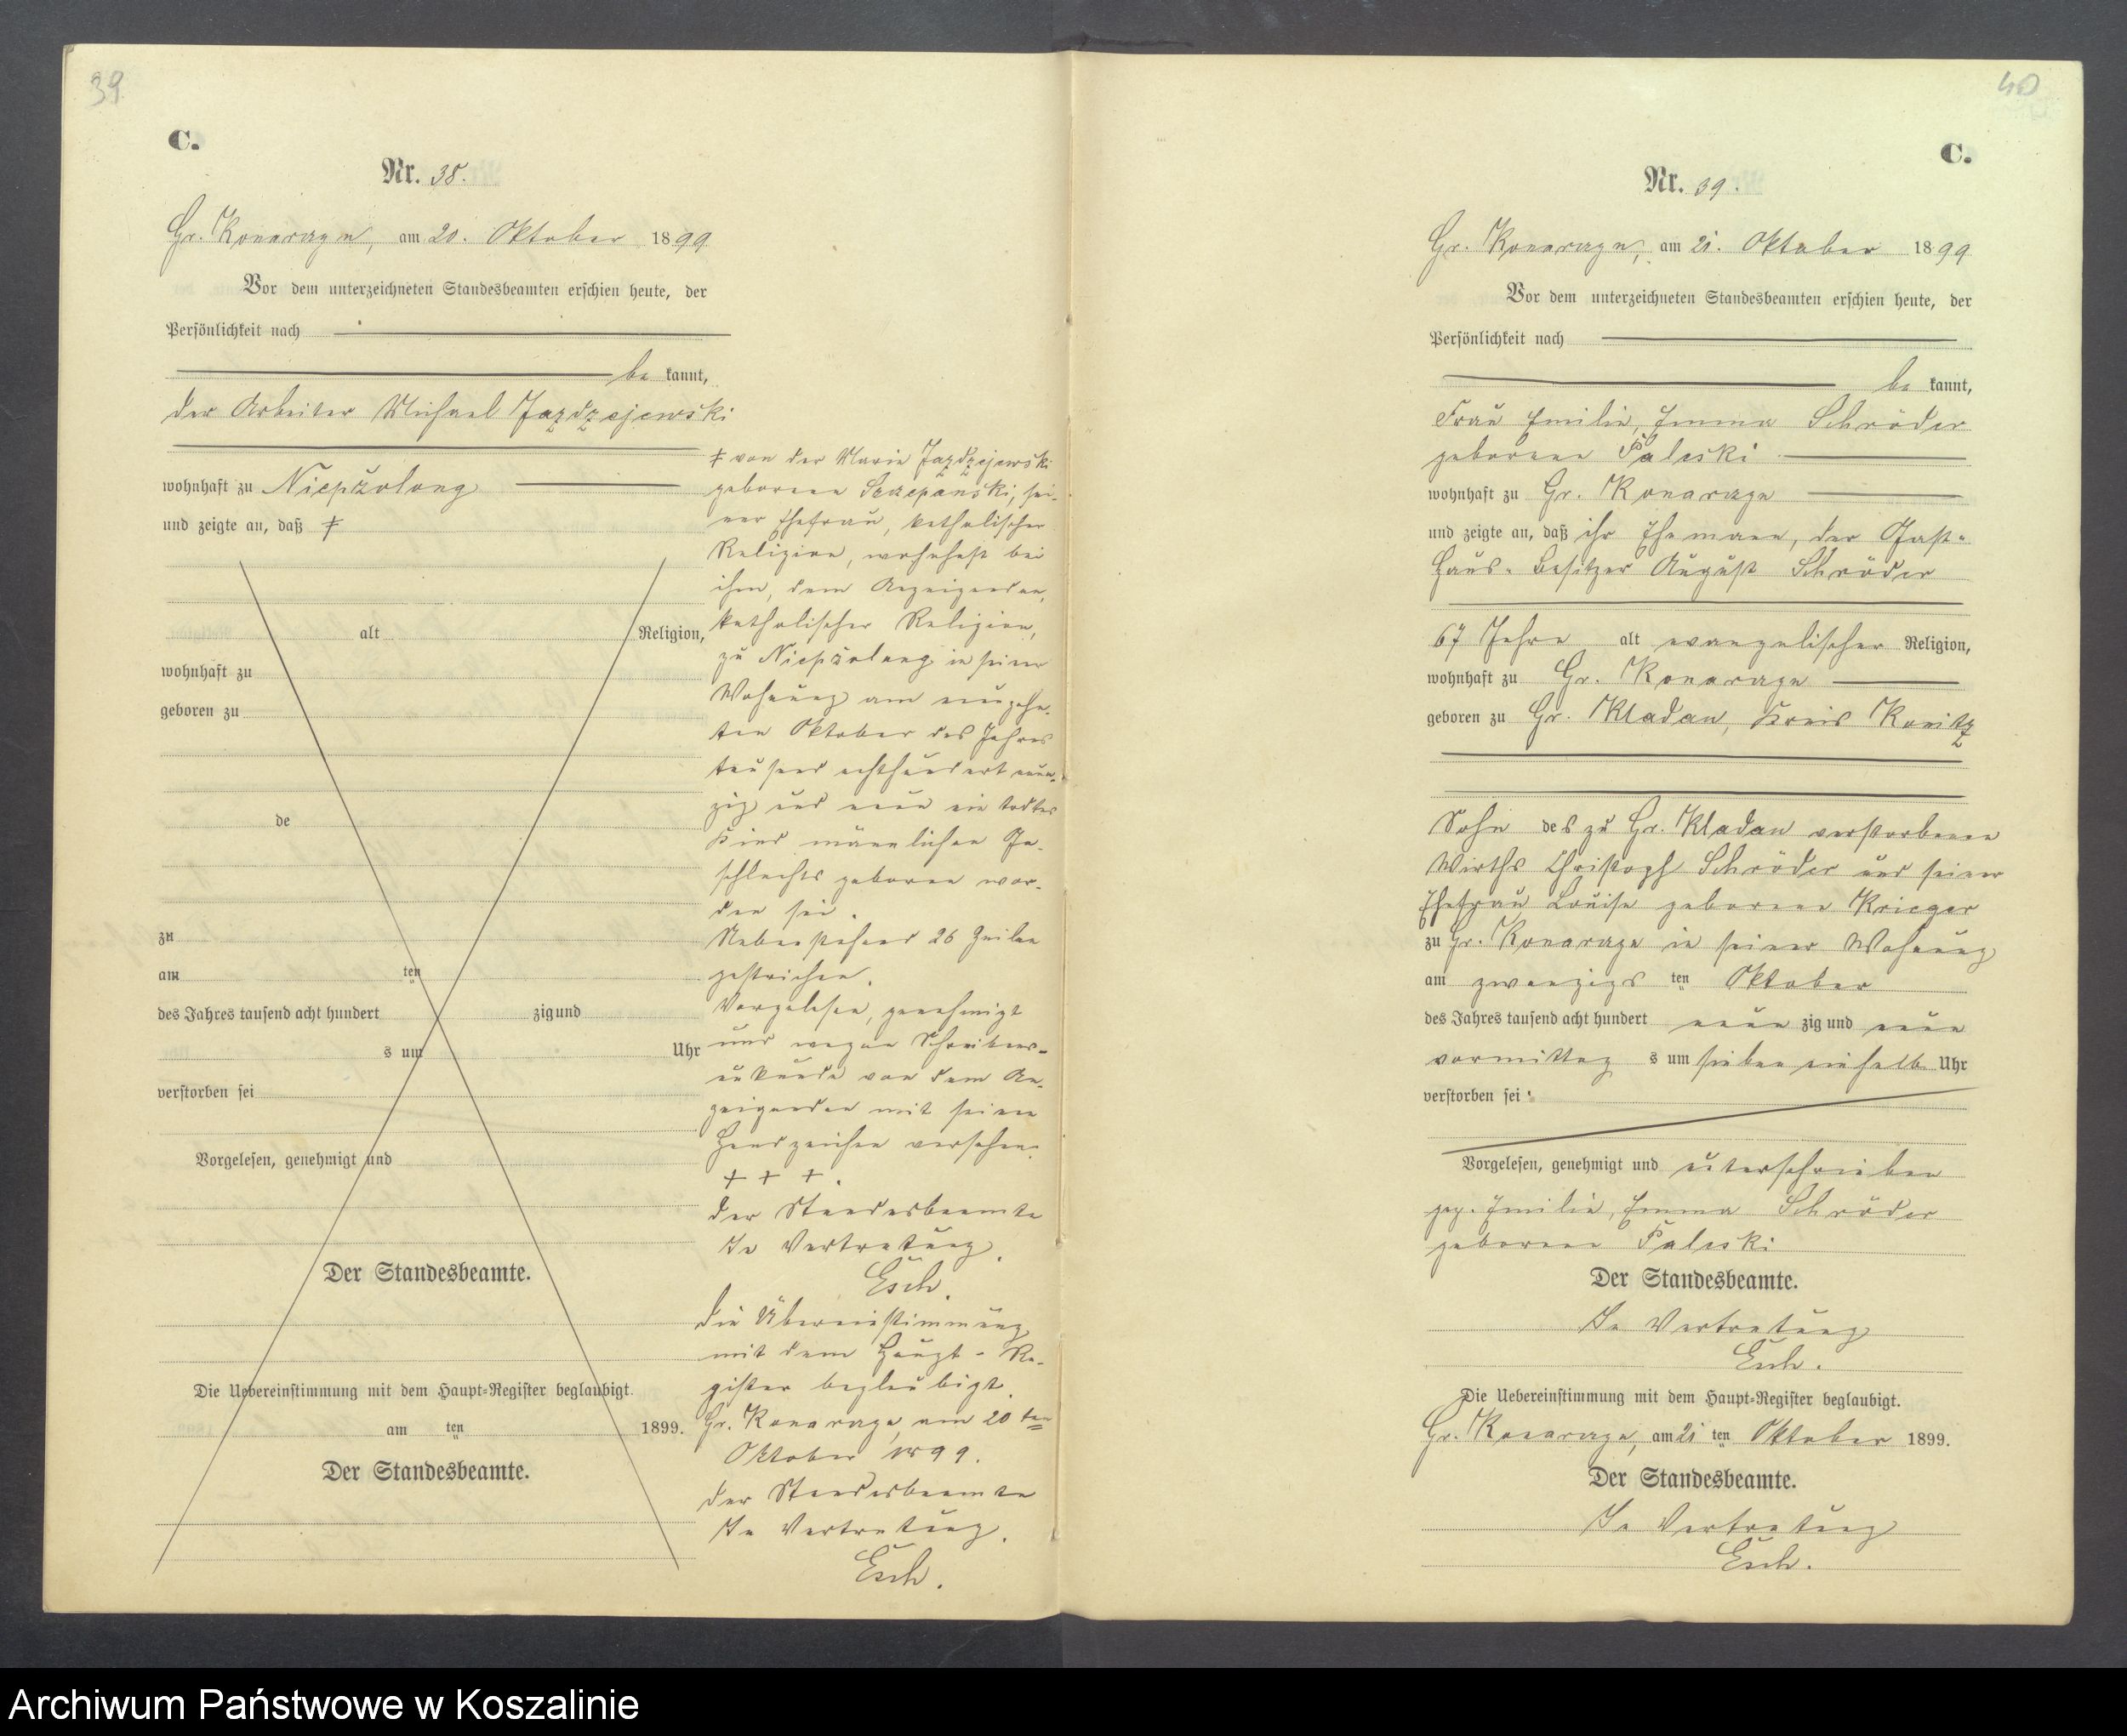 39
C.
Nr. 38.
Gr. Konarczyn, am 20. Oktober 1899
Vor dem unterzeichneten Standesbeamten erschien heute, der
Persönlichkeit nach
be kannt,
der Arbeiter Michael Jazdzejewski
wohnhaft zu Niepszolong
und zeigte an, daß ‡
alt Religion,
wohnhaft zu
geboren zu
de
zu
am ten
des Jahres tausend acht hundert zig und
s um Uhr
verstorben sei
Vorgelesen, genehmigt und
Der Standesbeamte.
Die Uebereinstimmung mit dem Haupt-Register beglaubigt.
am ten 1899.
Der Standesbeamte.
‡ von der Marie Jazdzejewski
geborene Szczepanski, sei-
ner Ehefrau, katholischer
Religion, wohnhaft bei
ihm, dem Anzeigenden,
katholischer Religion,
zu Niepszolong in seiner
Wohnung am neunzehn-
ten Oktober des Jahres
tausend achthundert neun-
zig und neun ein todtes
Kind männlichen Ge-
schlechts geboren wor-
den sei.
Nebenstehend 26 Zeilen
gestrichen.
Vorgelesen, genehmigt
und wegen Schreibens-
unkunde von dem An-
zeigenden mit seinen
Handzeichen versehen.
+ + +.
Der Standesbeamte
In Vertretung.
Esch.
Die Übereinstimmung
mit dem Haupt-Re-
gister beglaubigt.
Gr. Konarczyn, am 20 ten
Oktober 1899.
Der Standesbeamte
In Vertretung.
Esch.
40
C.
Nr. 39.
Gr. Konarczyn, am 21. Oktober 1899
Vor dem unterzeichneten Standesbeamten erschien heute, der
Persönlichkeit nach
be kannt,
Frau Emilie, Emma Schröder
geborene Paleski
wohnhaft zu Gr. Konarczyn
und zeigte an, daß ihr Ehemann, der Gast-
Haus-Besitzer August Schröder
67 Jahre alt evangelischer Religion,
wohnhaft zu Gr. Konarczyn
geboren zu Gr. Kladau, Kreis Konitz
Sohn des zu Gr. Kladau verstorbenen
Wirths Christoph Schröder und seiner
Ehefrau Louise geborene Krieger
zu Gr. Konarczyn in seiner Wohnung
am zwanzigs ten Oktober
des Jahres tausend acht hundert neun zig und neun
vormittag s um sieben einhalb Uhr
verstorben sei.
Vorgelesen, genehmigt und unterschrieben
gez. Emilie, Emma Schröder
geborene Paleski
Der Standesbeamte.
In Vertretung
Esch.
Die Uebereinstimmung mit dem Haupt-Register beglaubigt.
Gr. Konarczyn, am 21 ten Oktober 1899.
Der Standesbeamte.
In Vertretung
Esch.
Archiwum Państwowe w Koszalinie